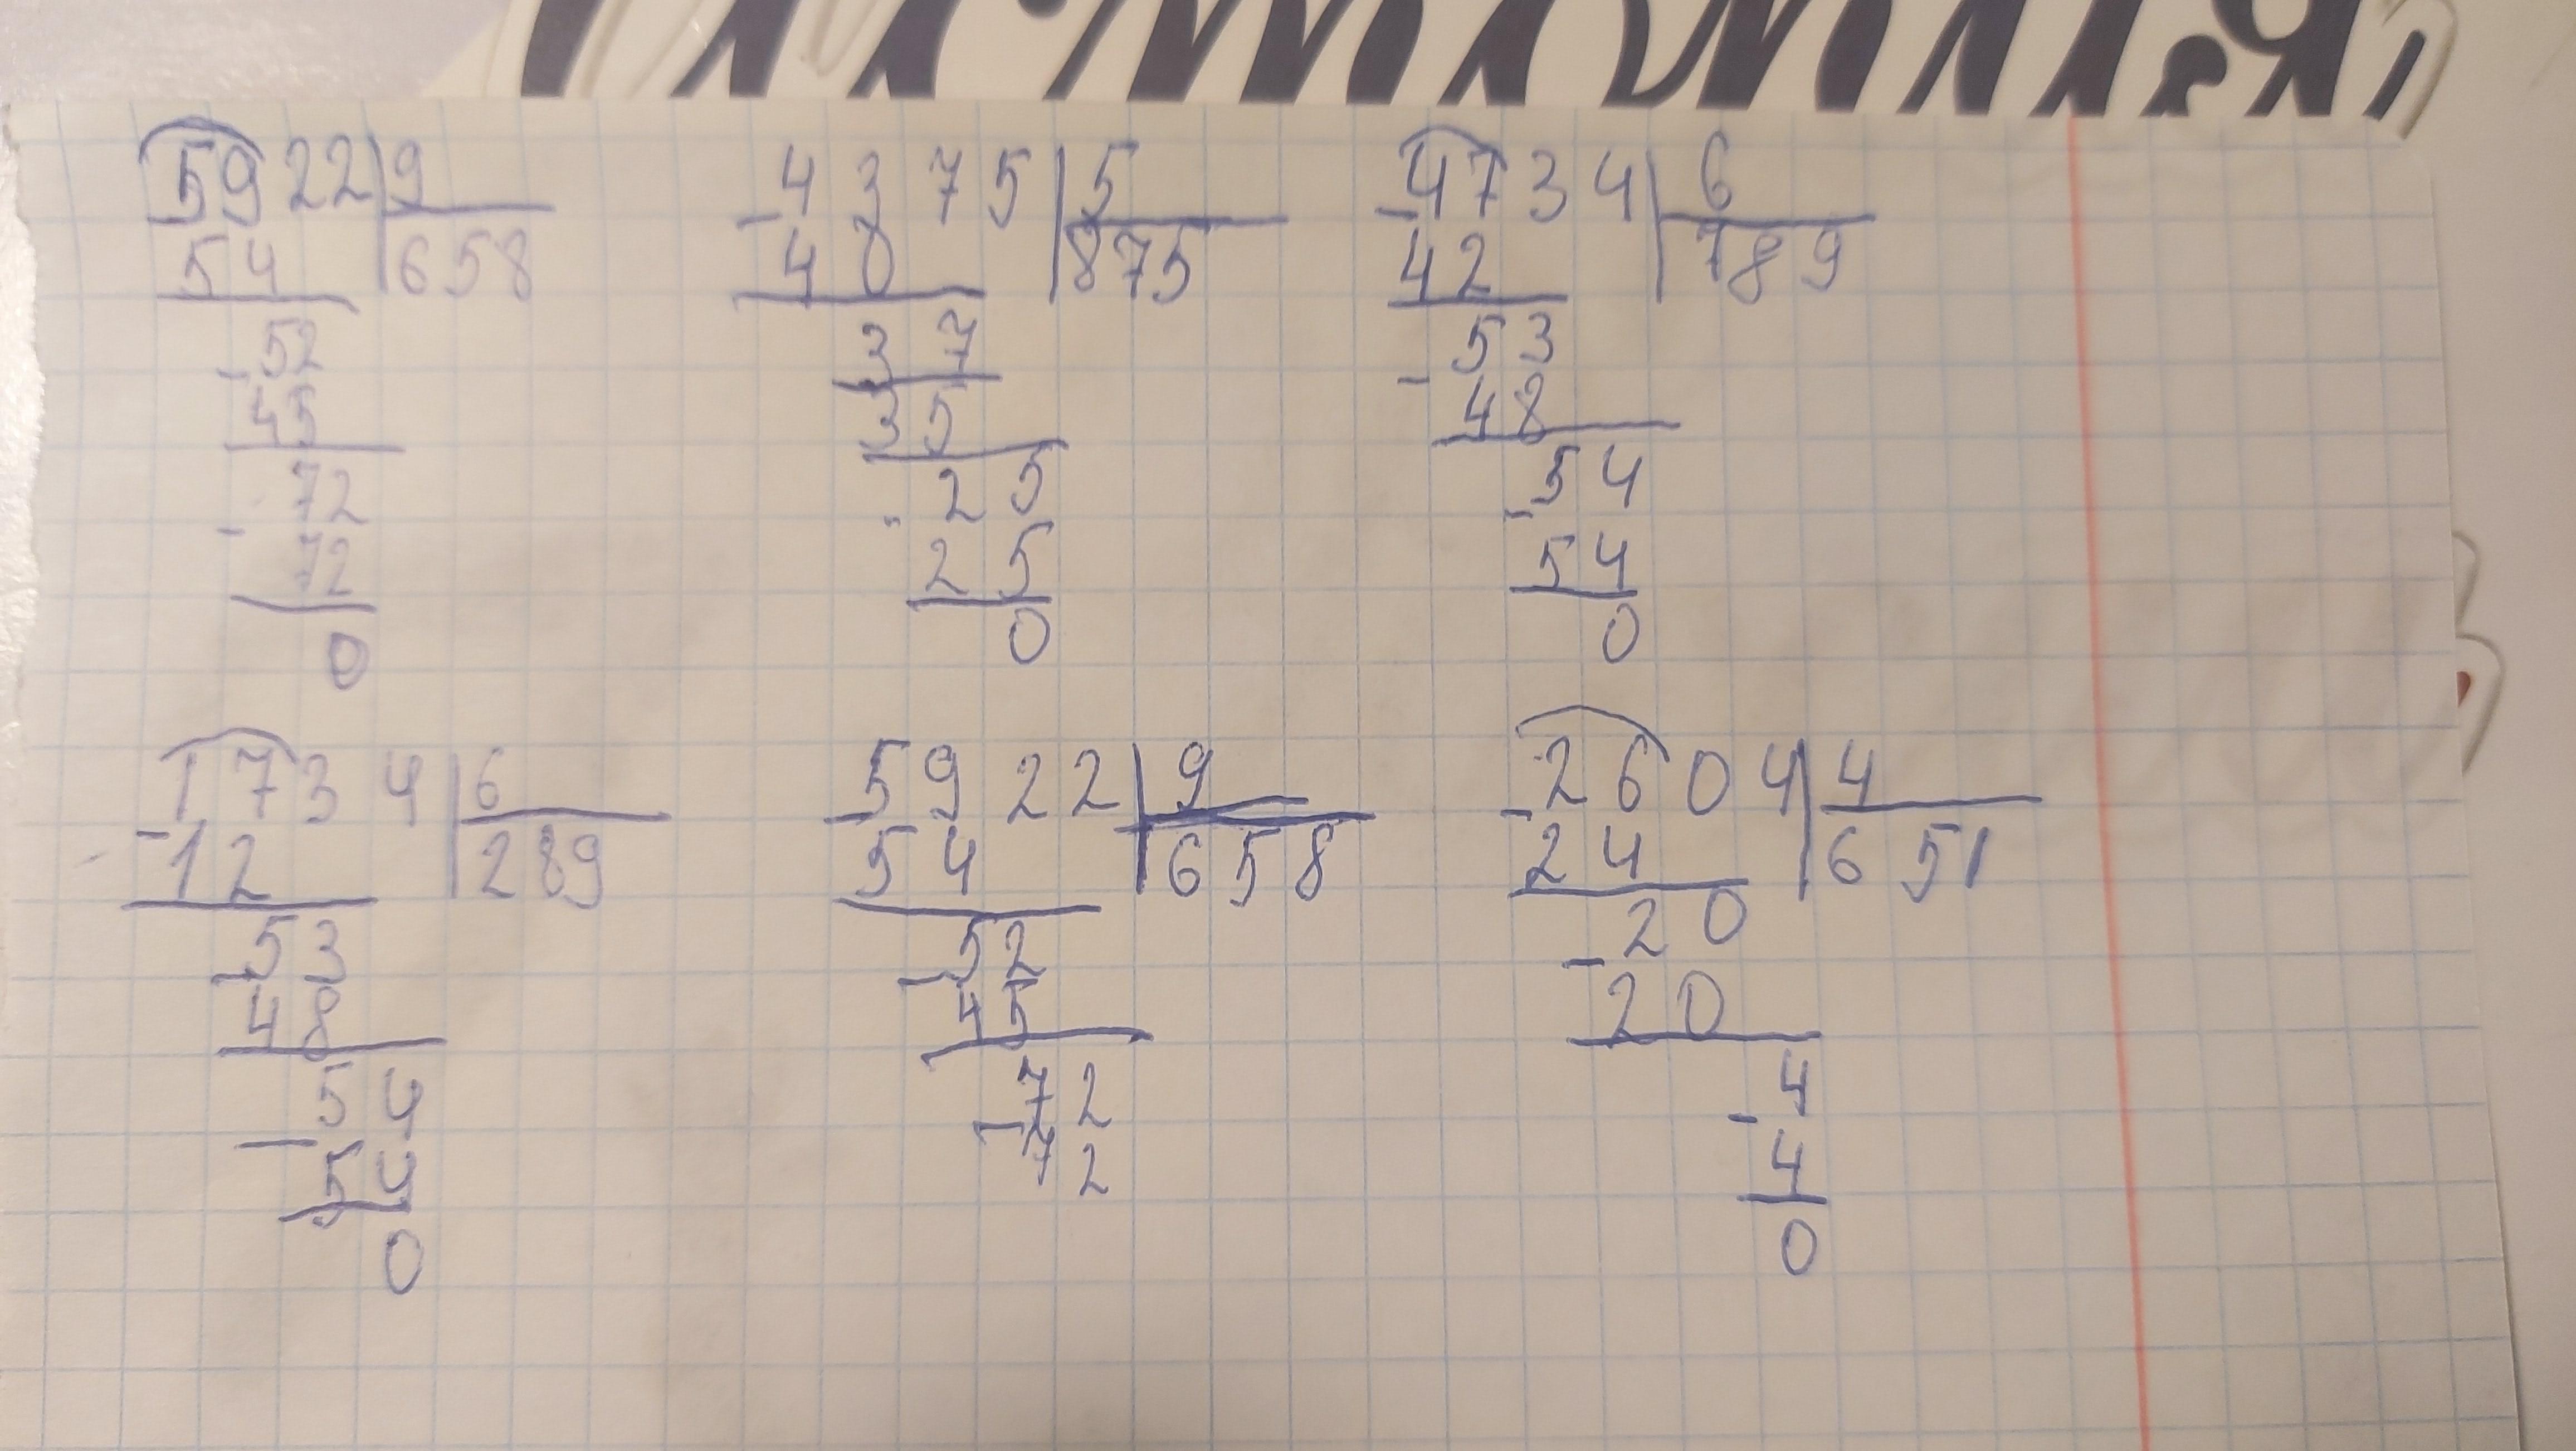 5922|9
54 |658
-52
45
-72
72
0
-4375|5
40 |875
37
35
25
25
0
-4734|6
42 |789
-53
48
-54
54
0
1734|6
-12 |289
-53
48
54
-54
0
-5922|9
54 |658
-52
45
-72
72
-2604|4
24 |651
20
-20
4
-4
0